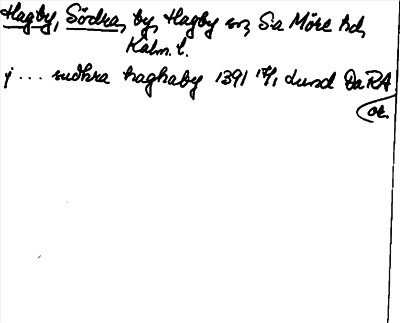 Hagby, Södra, by, Hagby sn, S:a Möre hd,
Kalm. l.
j ... sudhra haghaby 1391 17/1 Lund DaRA
or.